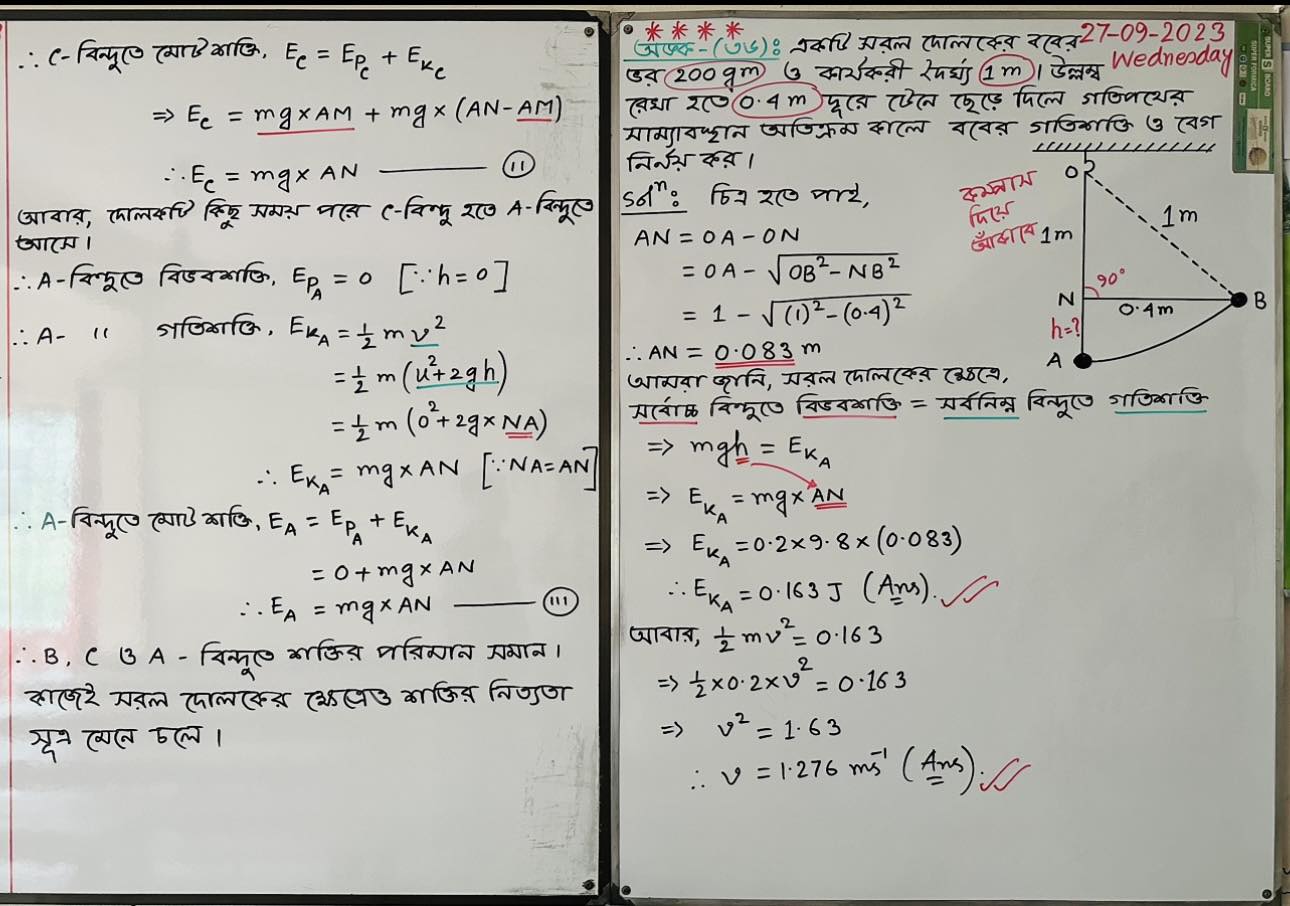 ∴ C-বিন্দুতে মোট শক্তি, E_C = E_{P_C} + E_{K_C}
⇒ E_C = mg×AM + mg×(AN-AM)
∴ E_C = mg×AN ——— (ii)
আবার, দোলকটি কিছু সময় পরে C-বিন্দু হতে A-বিন্দুতে
আসে।
∴ A-বিন্দুতে বিভবশক্তি, E_{P_A} = 0 [∵h=0]
∴ A- " গতিশক্তি, E_{K_A} = ½ m v²
= ½ m (u²+2gh)
= ½ m (0²+2g×NA)
∴ E_{K_A} = mg×AN [∵NA=AN]
∴ A-বিন্দুতে মোট শক্তি, E_A = E_{P_A} + E_{K_A}
= 0 + mg×AN
∴ E_A = mg×AN ——— (iii)
∴ B, C ও A - বিন্দুতে শক্তির পরিমান সমান।
কাজেই সরল দোলকের ক্ষেত্রেও শক্তির নিত্যতা
সূত্র মেনে চলে।
* * * *
27-09-2023
Wednesday
অংক-(৩৬): একটি সরল দোলকের ববের
ভর 200 gm ও কার্যকরী দৈর্ঘ্য 1 m। উল্লম্ব
রেখা হতে 0.4 m দূরে টেনে ছেড়ে দিলে গতিপথের
সাম্যাবস্থান অতিক্রম কালে ববের গতিশক্তি ও বেগ
নির্নয় কর।
Solⁿ: চিত্র হতে পাই,
AN = OA - ON
= OA - √(OB² - NB²)
= 1 - √((1)² - (0.4)²)
∴ AN = 0.083 m
কম্পাস
দিয়ে
আঁকাবে
O
1m
1m
90°
N
0.4m
B
h=?
A
আমরা জানি, সরল দোলকের ক্ষেত্রে,
সর্বোচ্চ বিন্দুতে বিভবশক্তি = সর্বনিম্ন বিন্দুতে গতিশক্তি
⇒ mgh = E_{K_A}
⇒ E_{K_A} = mg×AN
⇒ E_{K_A} = 0.2×9.8×(0.083)
∴ E_{K_A} = 0.163 J (Ans).
আবার, ½ mv² = 0.163
⇒ ½×0.2×v² = 0.163
⇒ v² = 1.63
∴ v = 1.276 ms⁻¹ (Ans).